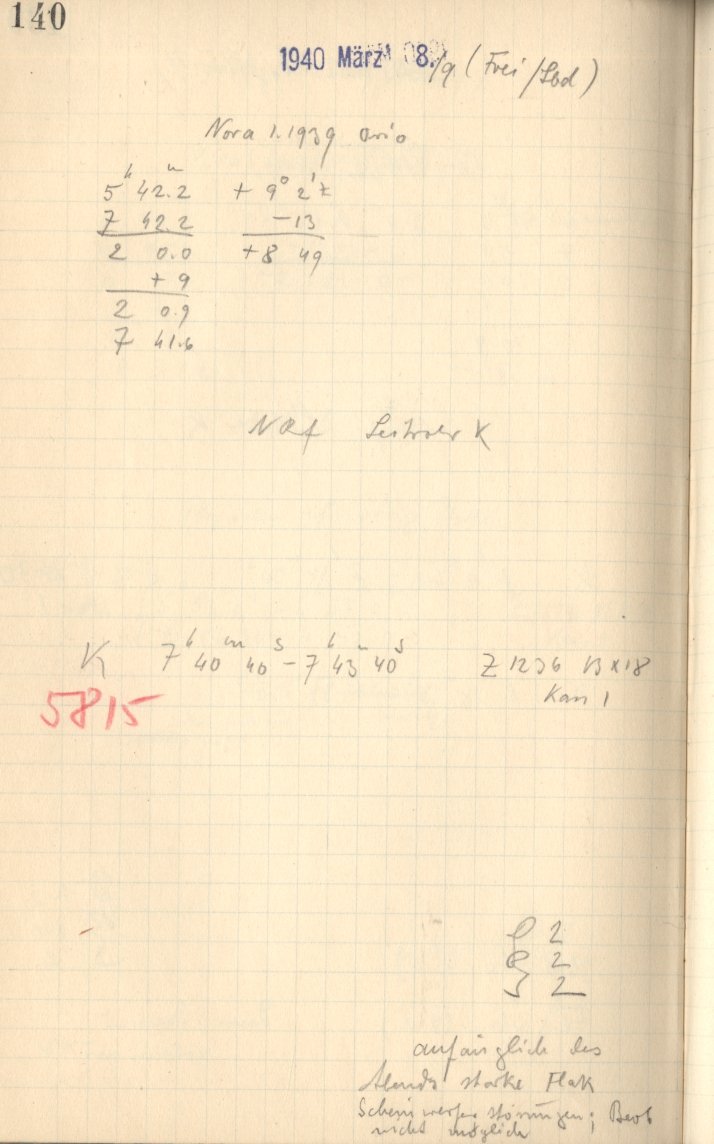 140
1940 März 8./9 (Frei/Lbd)
Nova 1.1939
5h 42.2m + 9° 2'
7 42.2 -13
2 0.0 +8 49
+ 9
2 0.9
7 41.6
K
K 7h 40m 40s - 7h 43m 40s Z 1236 13x18
Kam 1
5815
2
2
2
anfänglich des
Abends starke Flak
Scheinwerfer störungen; Beob
nicht möglich